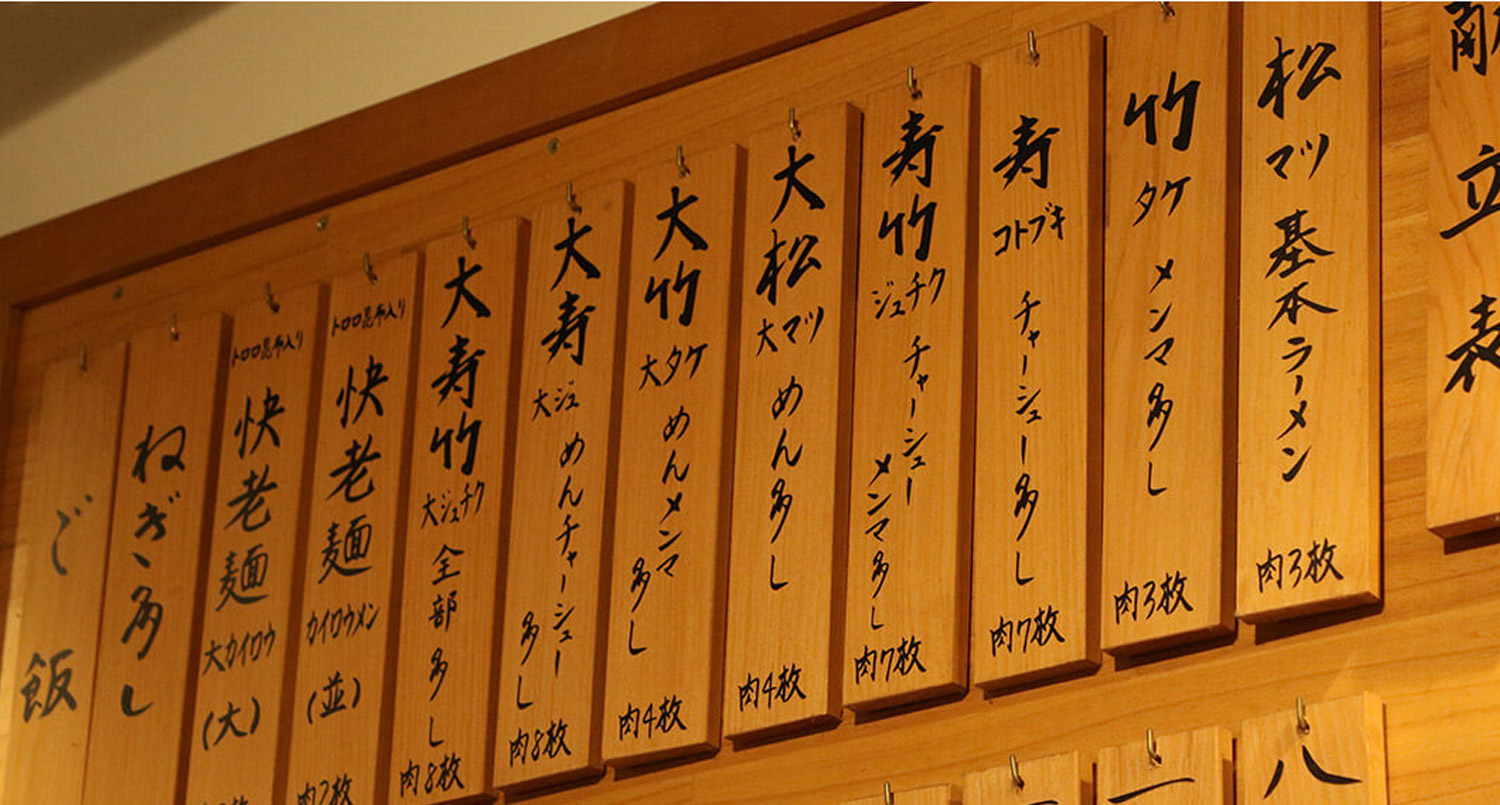 献立表
松 マツ 基本ラーメン 肉3枚
竹 タケ メンマ多し 肉3枚
寿 コトブキ チャーシュー多し 肉7枚
寿竹 ジュチク チャーシュー
メンマ多し 肉7枚
大松 大マツ めん多し 肉4枚
大竹 大タケ めんメンマ
多し 肉4枚
大寿 大ジュ めんチャーシュー
多し 肉8枚
大寿竹 大ジュチク 全部多し 肉8枚
トロロ昆布入り
快老麺 カイロウメン (並) 肉2枚
トロロ昆布入り
快老麺 大カイロウ (大)
ねぎ多し
ご飯
八
一